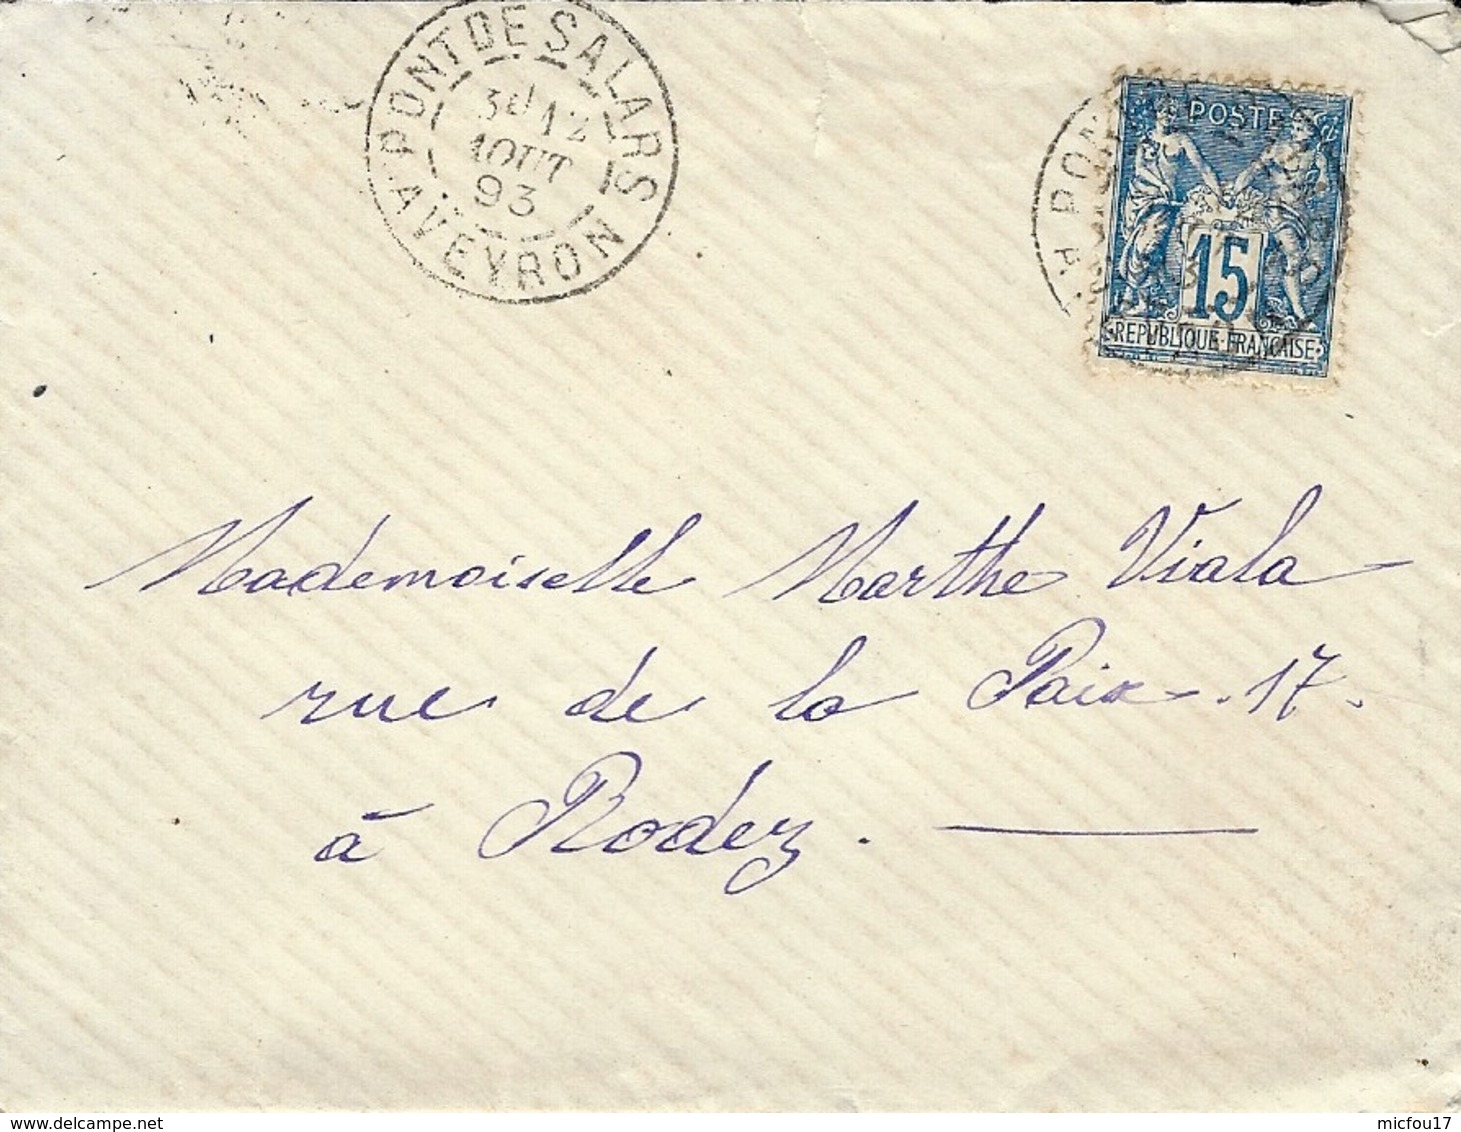 PONT DE SALARS
3E 12
AOUT
93
AVEYRON
POSTE
15
REPUBLIQUE FRANÇAISE
Mademoiselle Marthe Viala
rue de la Paix . 17 .
à Rodez .
delcampe.net
micfou17